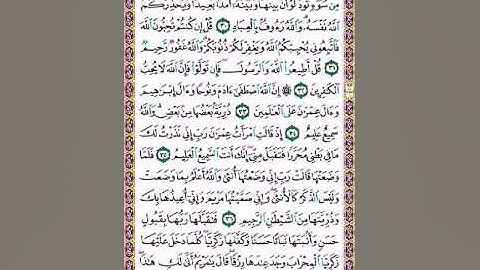 مِن سُوٓءٍ تَوَدُّ لَوْ أَنَّ بَيْنَهَا وَبَيْنَهُۥٓ أَمَدًۢا بَعِيدًا وَيُحَذِّرُكُمُ
ٱللَّهُ نَفْسَهُۥ وَٱللَّهُ رَءُوفٌۢ بِٱلْعِبَادِ ٣٠ قُلْ إِن كُنتُمْ تُحِبُّونَ ٱللَّهَ
فَٱتَّبِعُونِى يُحْبِبْكُمُ ٱللَّهُ وَيَغْفِرْ لَكُمْ ذُنُوبَكُمْ وَٱللَّهُ غَفُورٌ رَّحِيمٌ
٣١ قُلْ أَطِيعُوا۟ ٱللَّهَ وَٱلرَّسُولَ فَإِن تَوَلَّوْا۟ فَإِنَّ ٱللَّهَ لَا يُحِبُّ
ٱلْكَٰفِرِينَ ٣٢ ۞ إِنَّ ٱللَّهَ ٱصْطَفَىٰٓ ءَادَمَ وَنُوحًا وَءَالَ إِبْرَٰهِيمَ
وَءَالَ عِمْرَٰنَ عَلَى ٱلْعَٰلَمِينَ ٣٣ ذُرِّيَّةًۢ بَعْضُهَا مِنۢ بَعْضٍ وَٱللَّهُ
سَمِيعٌ عَلِيمٌ ٣٤ إِذْ قَالَتِ ٱمْرَأَتُ عِمْرَٰنَ رَبِّ إِنِّى نَذَرْتُ لَكَ
مَا فِى بَطْنِى مُحَرَّرًا فَتَقَبَّلْ مِنِّىٓ إِنَّكَ أَنتَ ٱلسَّمِيعُ ٱلْعَلِيمُ ٣٥ فَلَمَّا
وَضَعَتْهَا قَالَتْ رَبِّ إِنِّى وَضَعْتُهَآ أُنثَىٰ وَٱللَّهُ أَعْلَمُ بِمَا وَضَعَتْ
وَلَيْسَ ٱلذَّكَرُ كَٱلْأُنثَىٰ وَإِنِّى سَمَّيْتُهَا مَرْيَمَ وَإِنِّىٓ أُعِيذُهَا بِكَ
وَذُرِّيَّتَهَا مِنَ ٱلشَّيْطَٰنِ ٱلرَّجِيمِ ٣٦ فَتَقَبَّلَهَا رَبُّهَا بِقَبُولٍ
حَسَنٍ وَأَنۢبَتَهَا نَبَاتًا حَسَنًا وَكَفَّلَهَا زَكَرِيَّا كُلَّمَا دَخَلَ عَلَيْهَا
زَكَرِيَّا ٱلْمِحْرَابَ وَجَدَ عِندَهَا رِزْقًا قَالَ يَٰمَرْيَمُ أَنَّىٰ لَكِ هَٰذَا